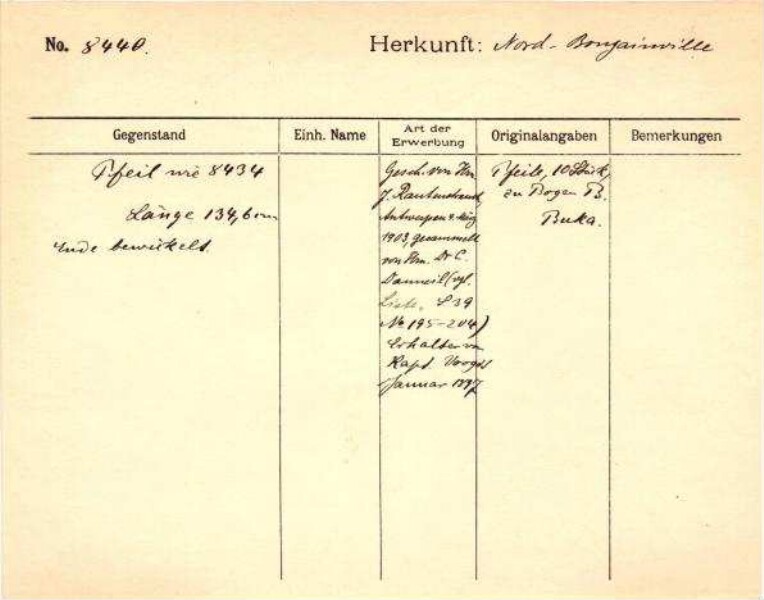 No. 8440.
Herkunft: Nord-Bougainville
Gegenstand
Einh. Name
Art der Erwerbung
Originalangaben
Bemerkungen
Pfeil wie 8434
Länge 134,6 cm
Ende bewickelt.
Gesch. von Hrn
J. Rautenstrauch
Antwerpen 4. März
1903, gesammelt
von Hrn. Dr C.
Danneil (vgl.
Liste, S 39
No 195-204)
Erhalten von
Kapt.
Januar 1897
Pfeile, 10 Stück,
zu Bogen B.
Buka.